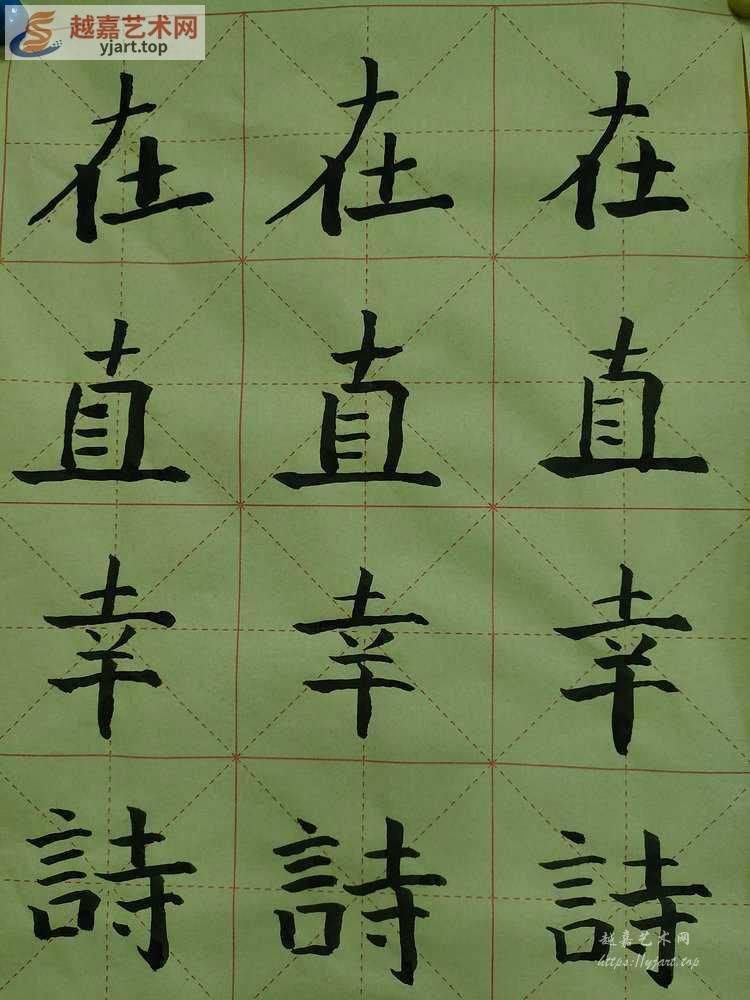 越嘉艺术网
yjart.top
在在在
直直直
幸幸幸
詩詩詩
越嘉艺术网
https://yjart.top